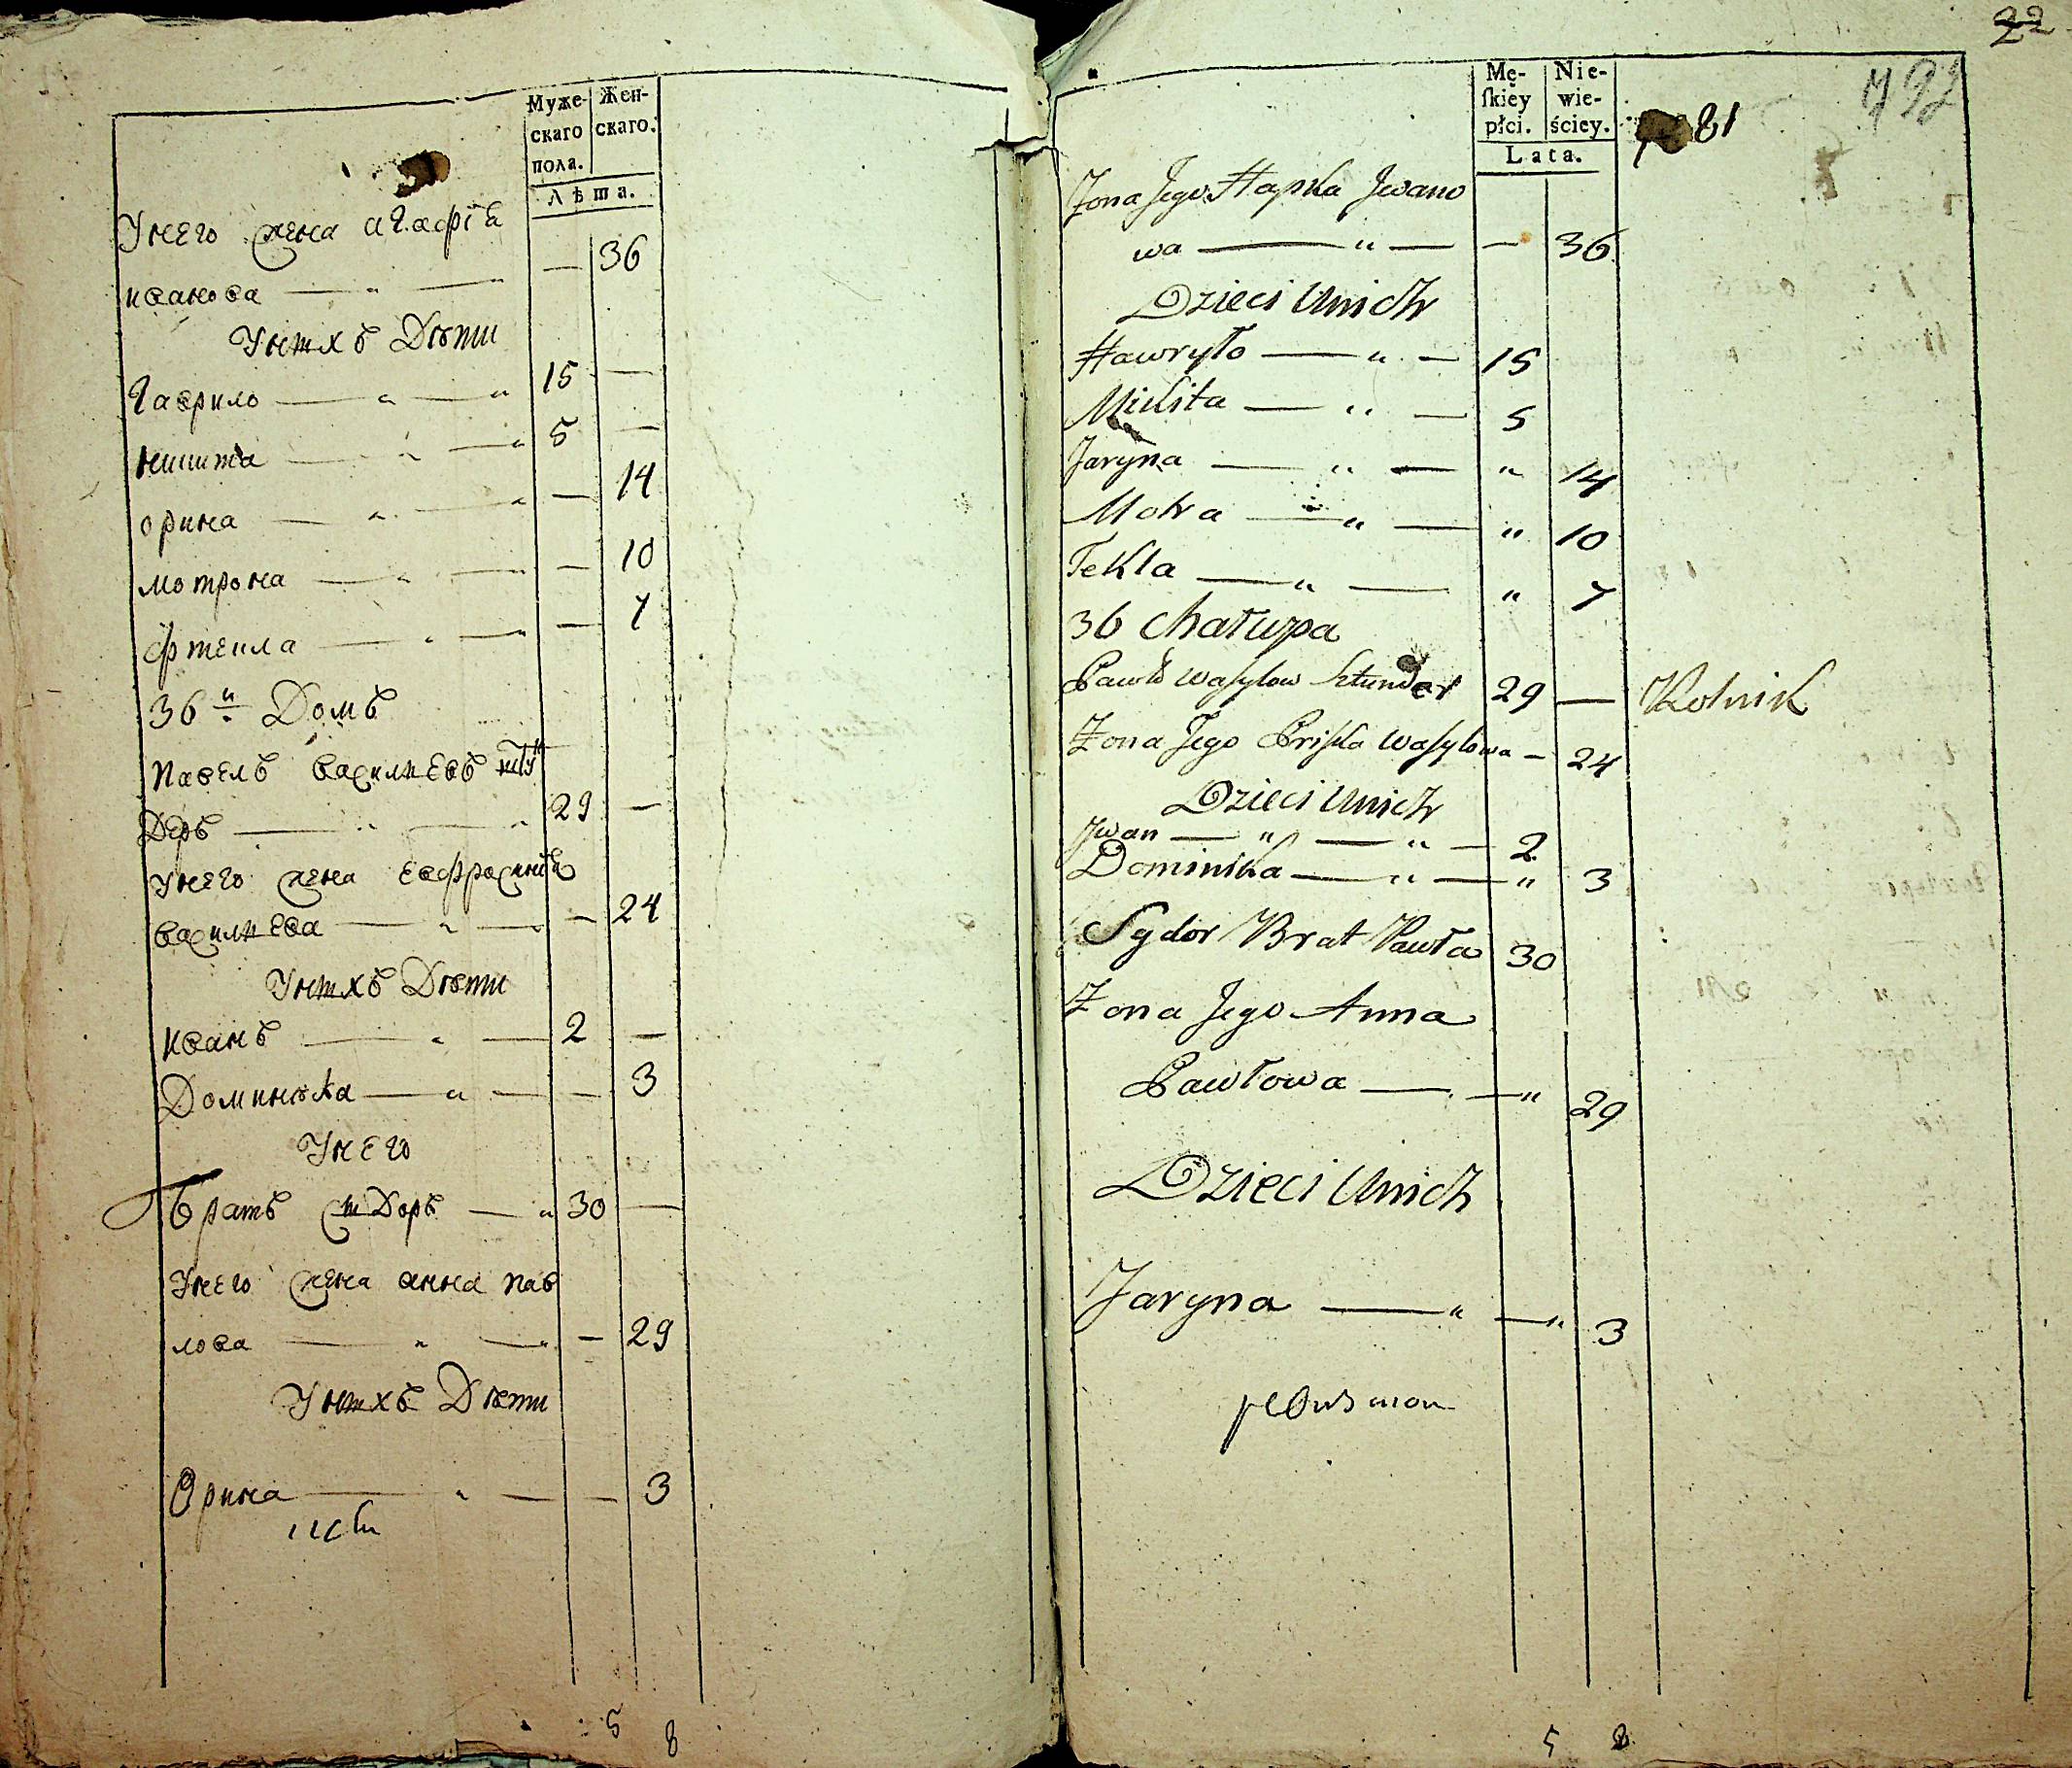 Муже- Жен-
скаго скаго.
пола.
Лѣта.
Унего жена агафiя
иванова — „ — — 36
Унихъ Дѣти
Гаврило — „ — „ 15 —
никита — „ — „ 5 —
орина — „ — „ — 14
мотрона — „ — „ — 10
фтекла — „ — „ — 7
36й Домъ
павелъ василиевъ штун
Деръ — „ — „ 29 —
Унего жена евфросинiя
василиева — „ — — 24
Унихъ Дѣти
иванъ — „ — 2 —
Доминѣка — „ — — 3
Унего
братъ сидоръ — „ 30 —
Унего жена анна пав
лова — „ — „ — 29
Унихъ Дѣти
Орина — „ — — 3
5 8
22
Mę- Nie-
ſkiey wie-
płci. ściey.
Lata.
81
Zona Jego Hapka Jwano
wa — „ — — 36
Dzieci Unich
Hawryło — „ — 15
Mikita — „ — 5
Jaryna — „ — „ 14
Motra — „ — „ 10
Tekla — „ — „ 7
36 Chałupa
Pawło Wasylow Sztunder 29 — Rolnik
Zona Jego Priska Wasylowa — 24
Dzieci Unich
Jwan — „ — „ — 2
Dominika — „ — „ 3
Sydor Brat Pawła 30
Zona Jego Anna
Pawłowa — — „ 29
Dzieci Unich
Jaryna — „ — „ 3
5 8